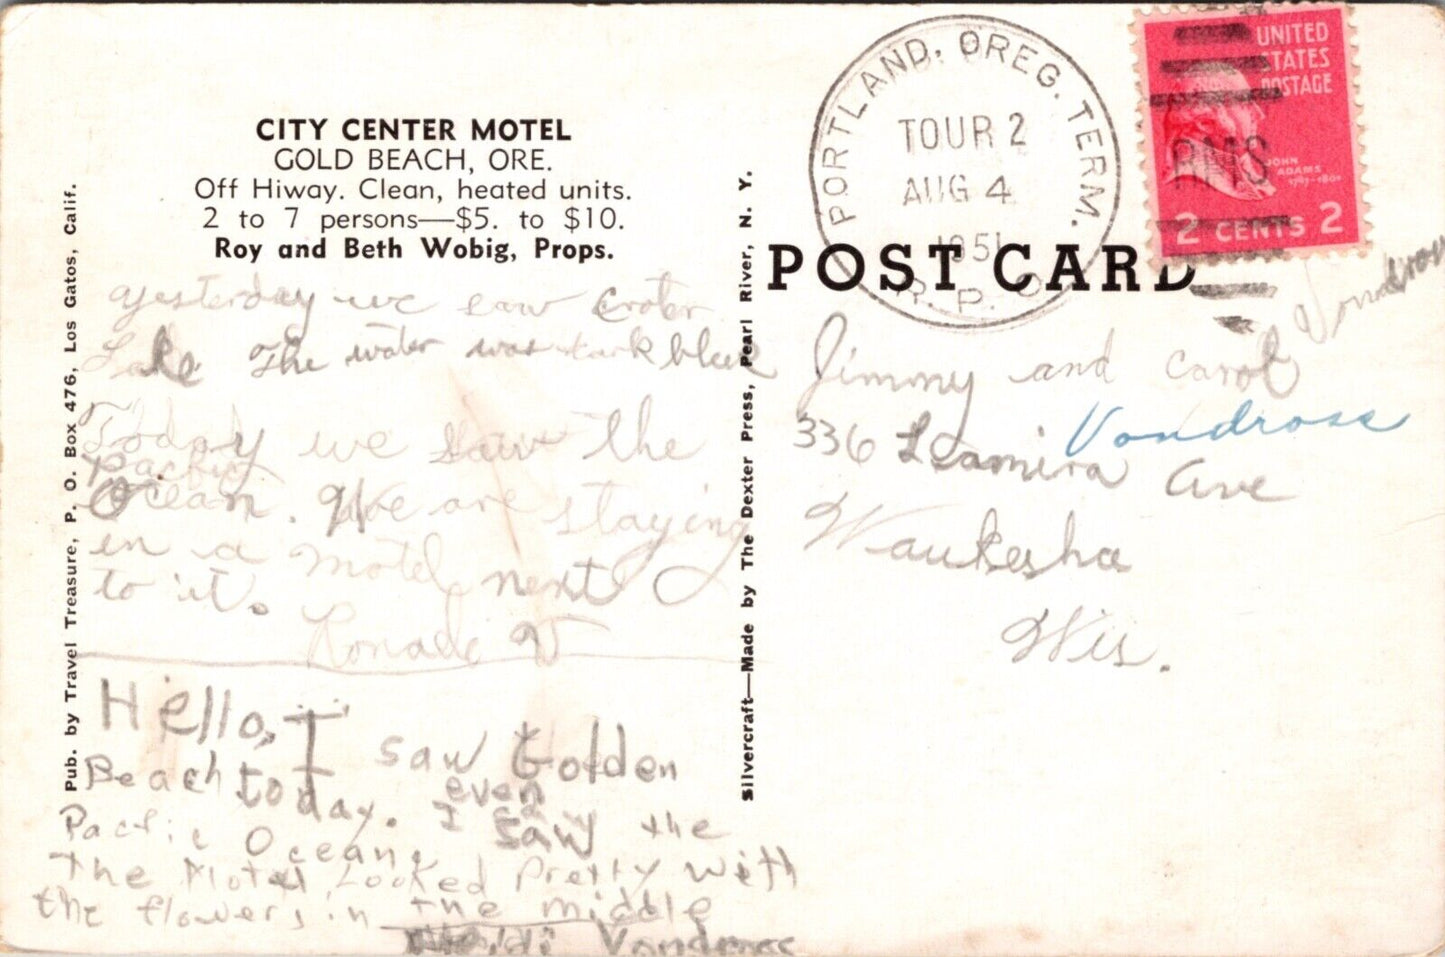 CITY CENTER MOTEL
GOLD BEACH, ORE.
Off Hiway. Clean, heated units.
2 to 7 persons—$5. to $10.
Roy and Beth Wobig, Props.
yesterday we saw Crater
Lake The water was dark blue
Today we saw the
Pacfic
Ocean. We are staying
in a motel next
to it.
Ronald V
Hello, I saw Golden
Beach today. I even
saw the
Pacfic Ocean.
The Motel Looked Pretty with
the flowers in the middle
Heidi Vondrose
Pub. by Travel Treasure, P. O. Box 476, Los Gatos, Calif.
Silvercraft—Made by The Dexter Press, Pearl River, N. Y.
POST CARD
PORTLAND, OREG. TERM.
TOUR 2
AUG 4
1951
R. P. O.
UNITED
STATES
POSTAGE
RMS
JOHN
ADAMS
1797-1801
2 CENTS 2
Jimmy and Carol Vondrose
Vondrose
336 Lamira Ave
Waukesha
Wis.